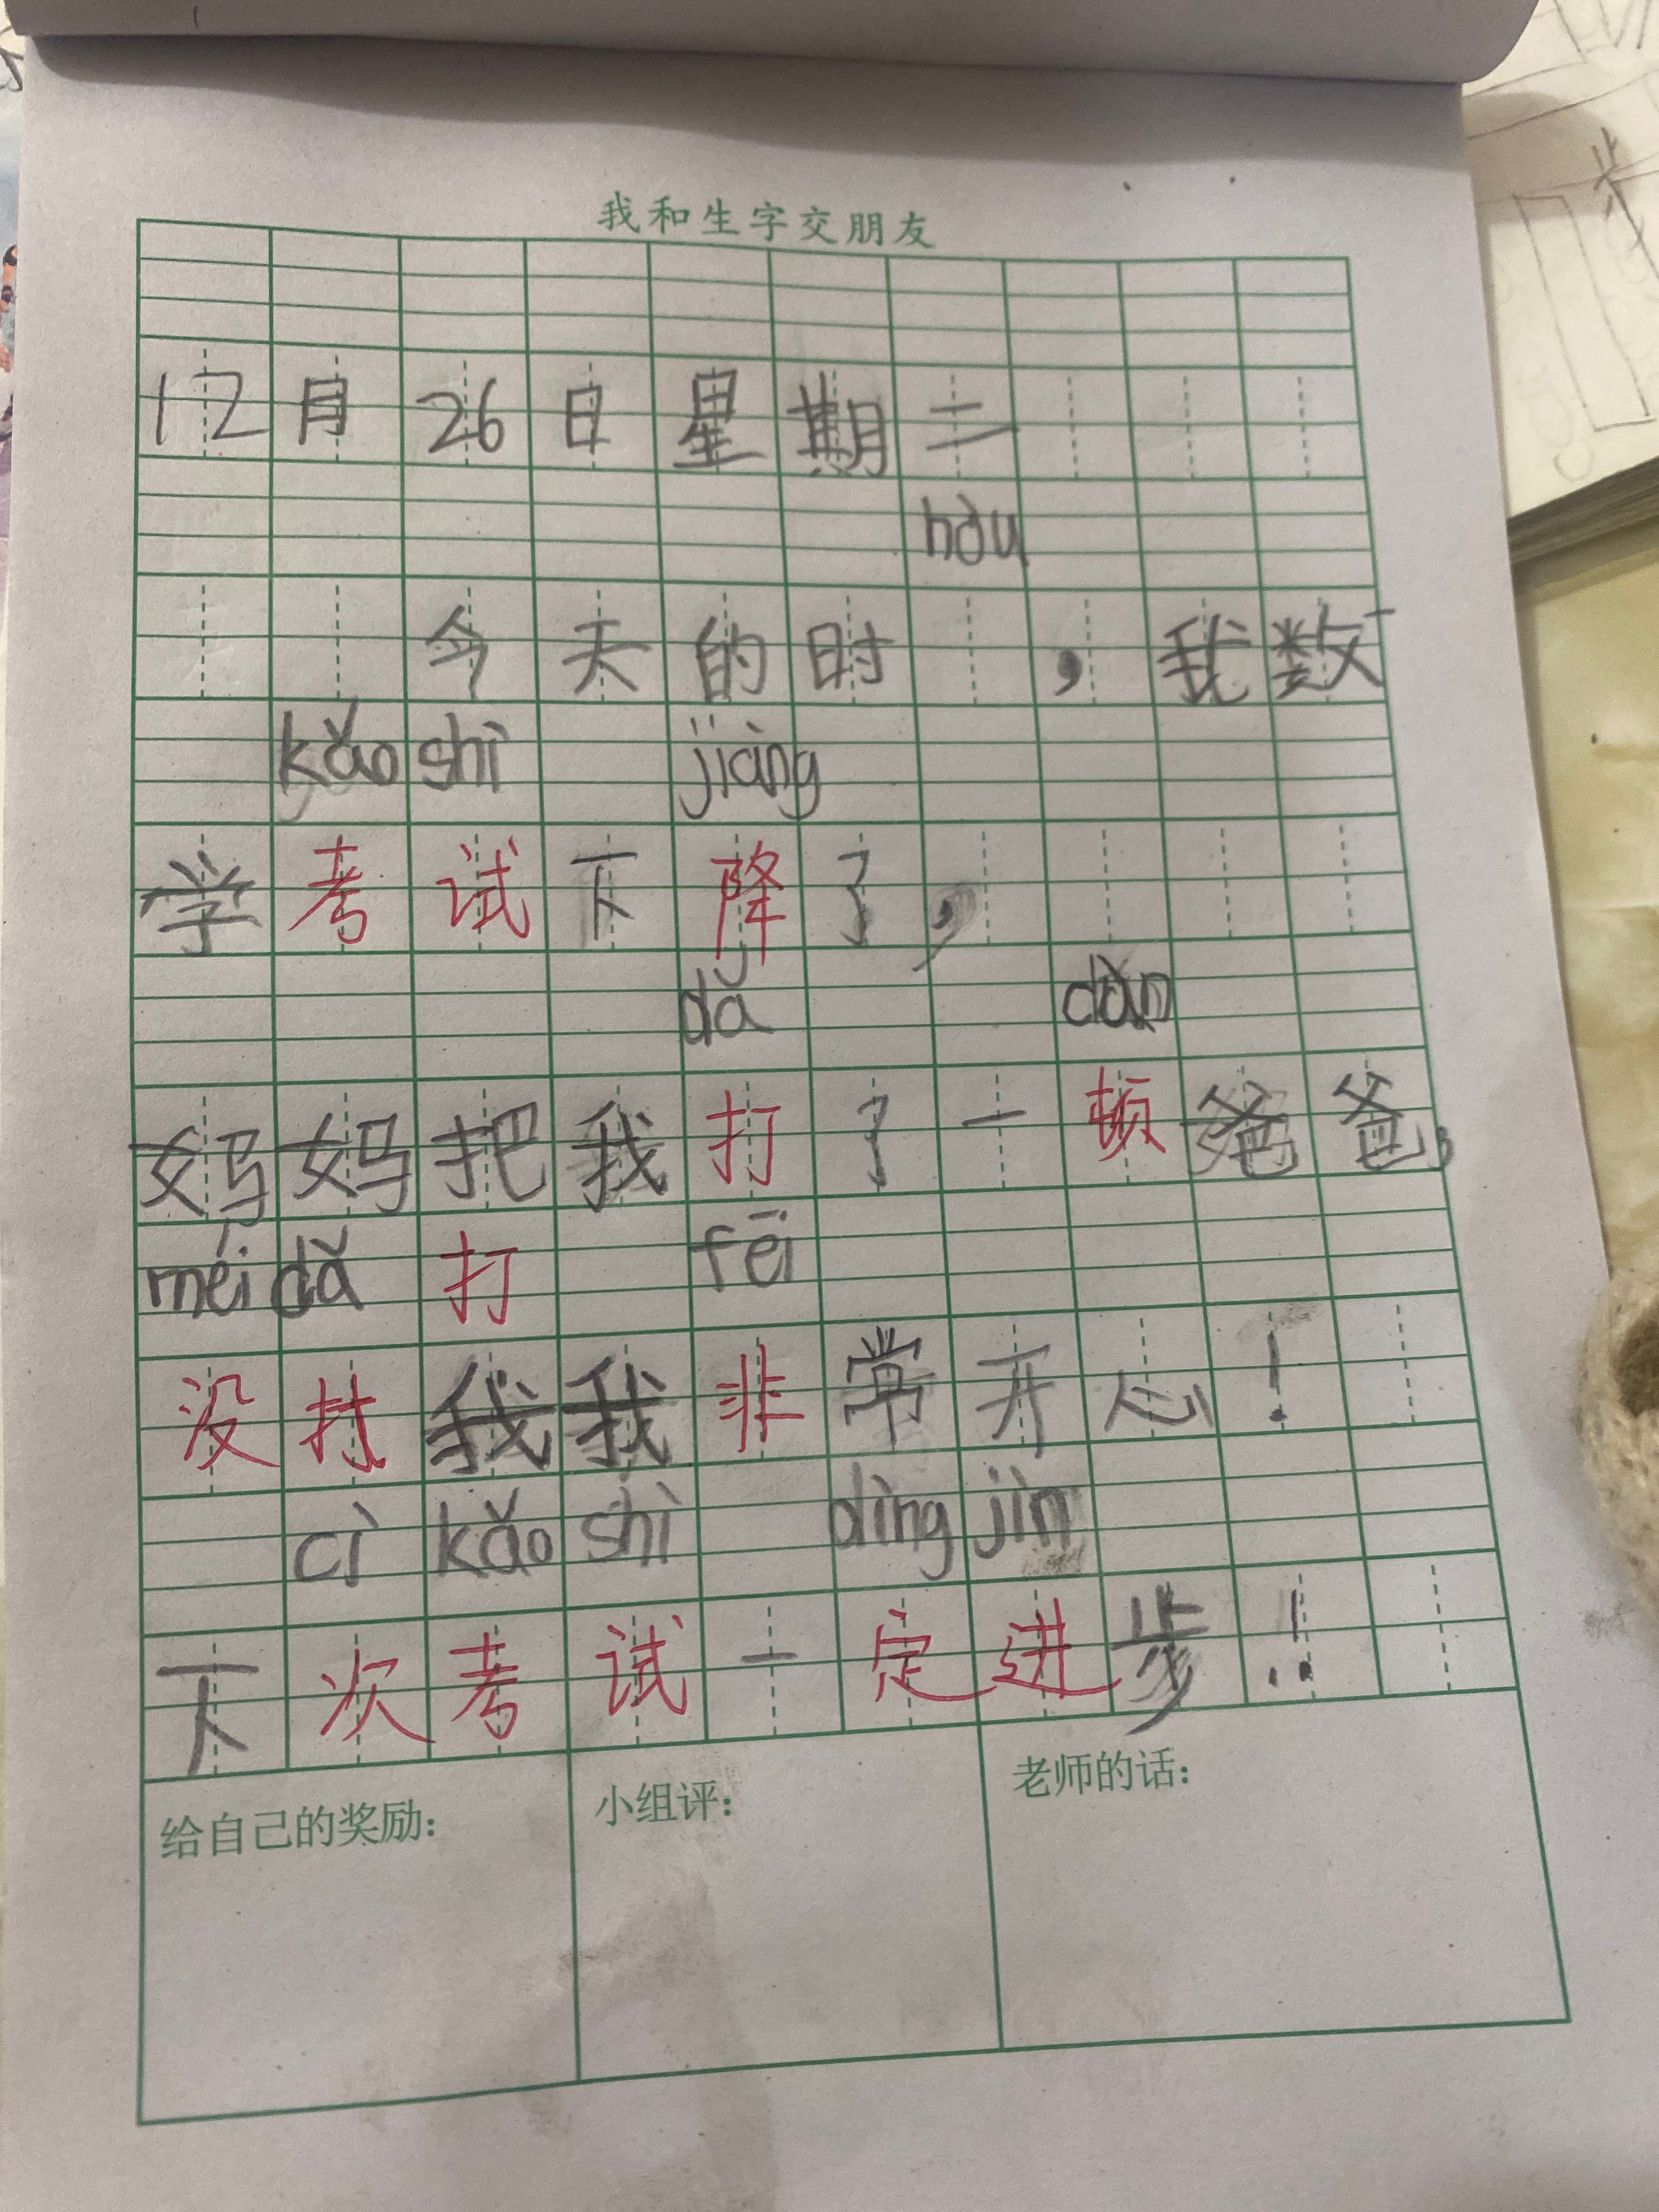 我和生字交朋友
12月26日星期二
hòu
今天的时，我数
kǎo shì jiàng
学考试下降了，
dǎ dàn
妈妈把我打了一顿爸爸，
méi dǎ 打 fēi
没打我我非常开心！
cì kǎo shì dìng jìn
下次考试一定进步！
给自己的奖励： 小组评： 老师的话：